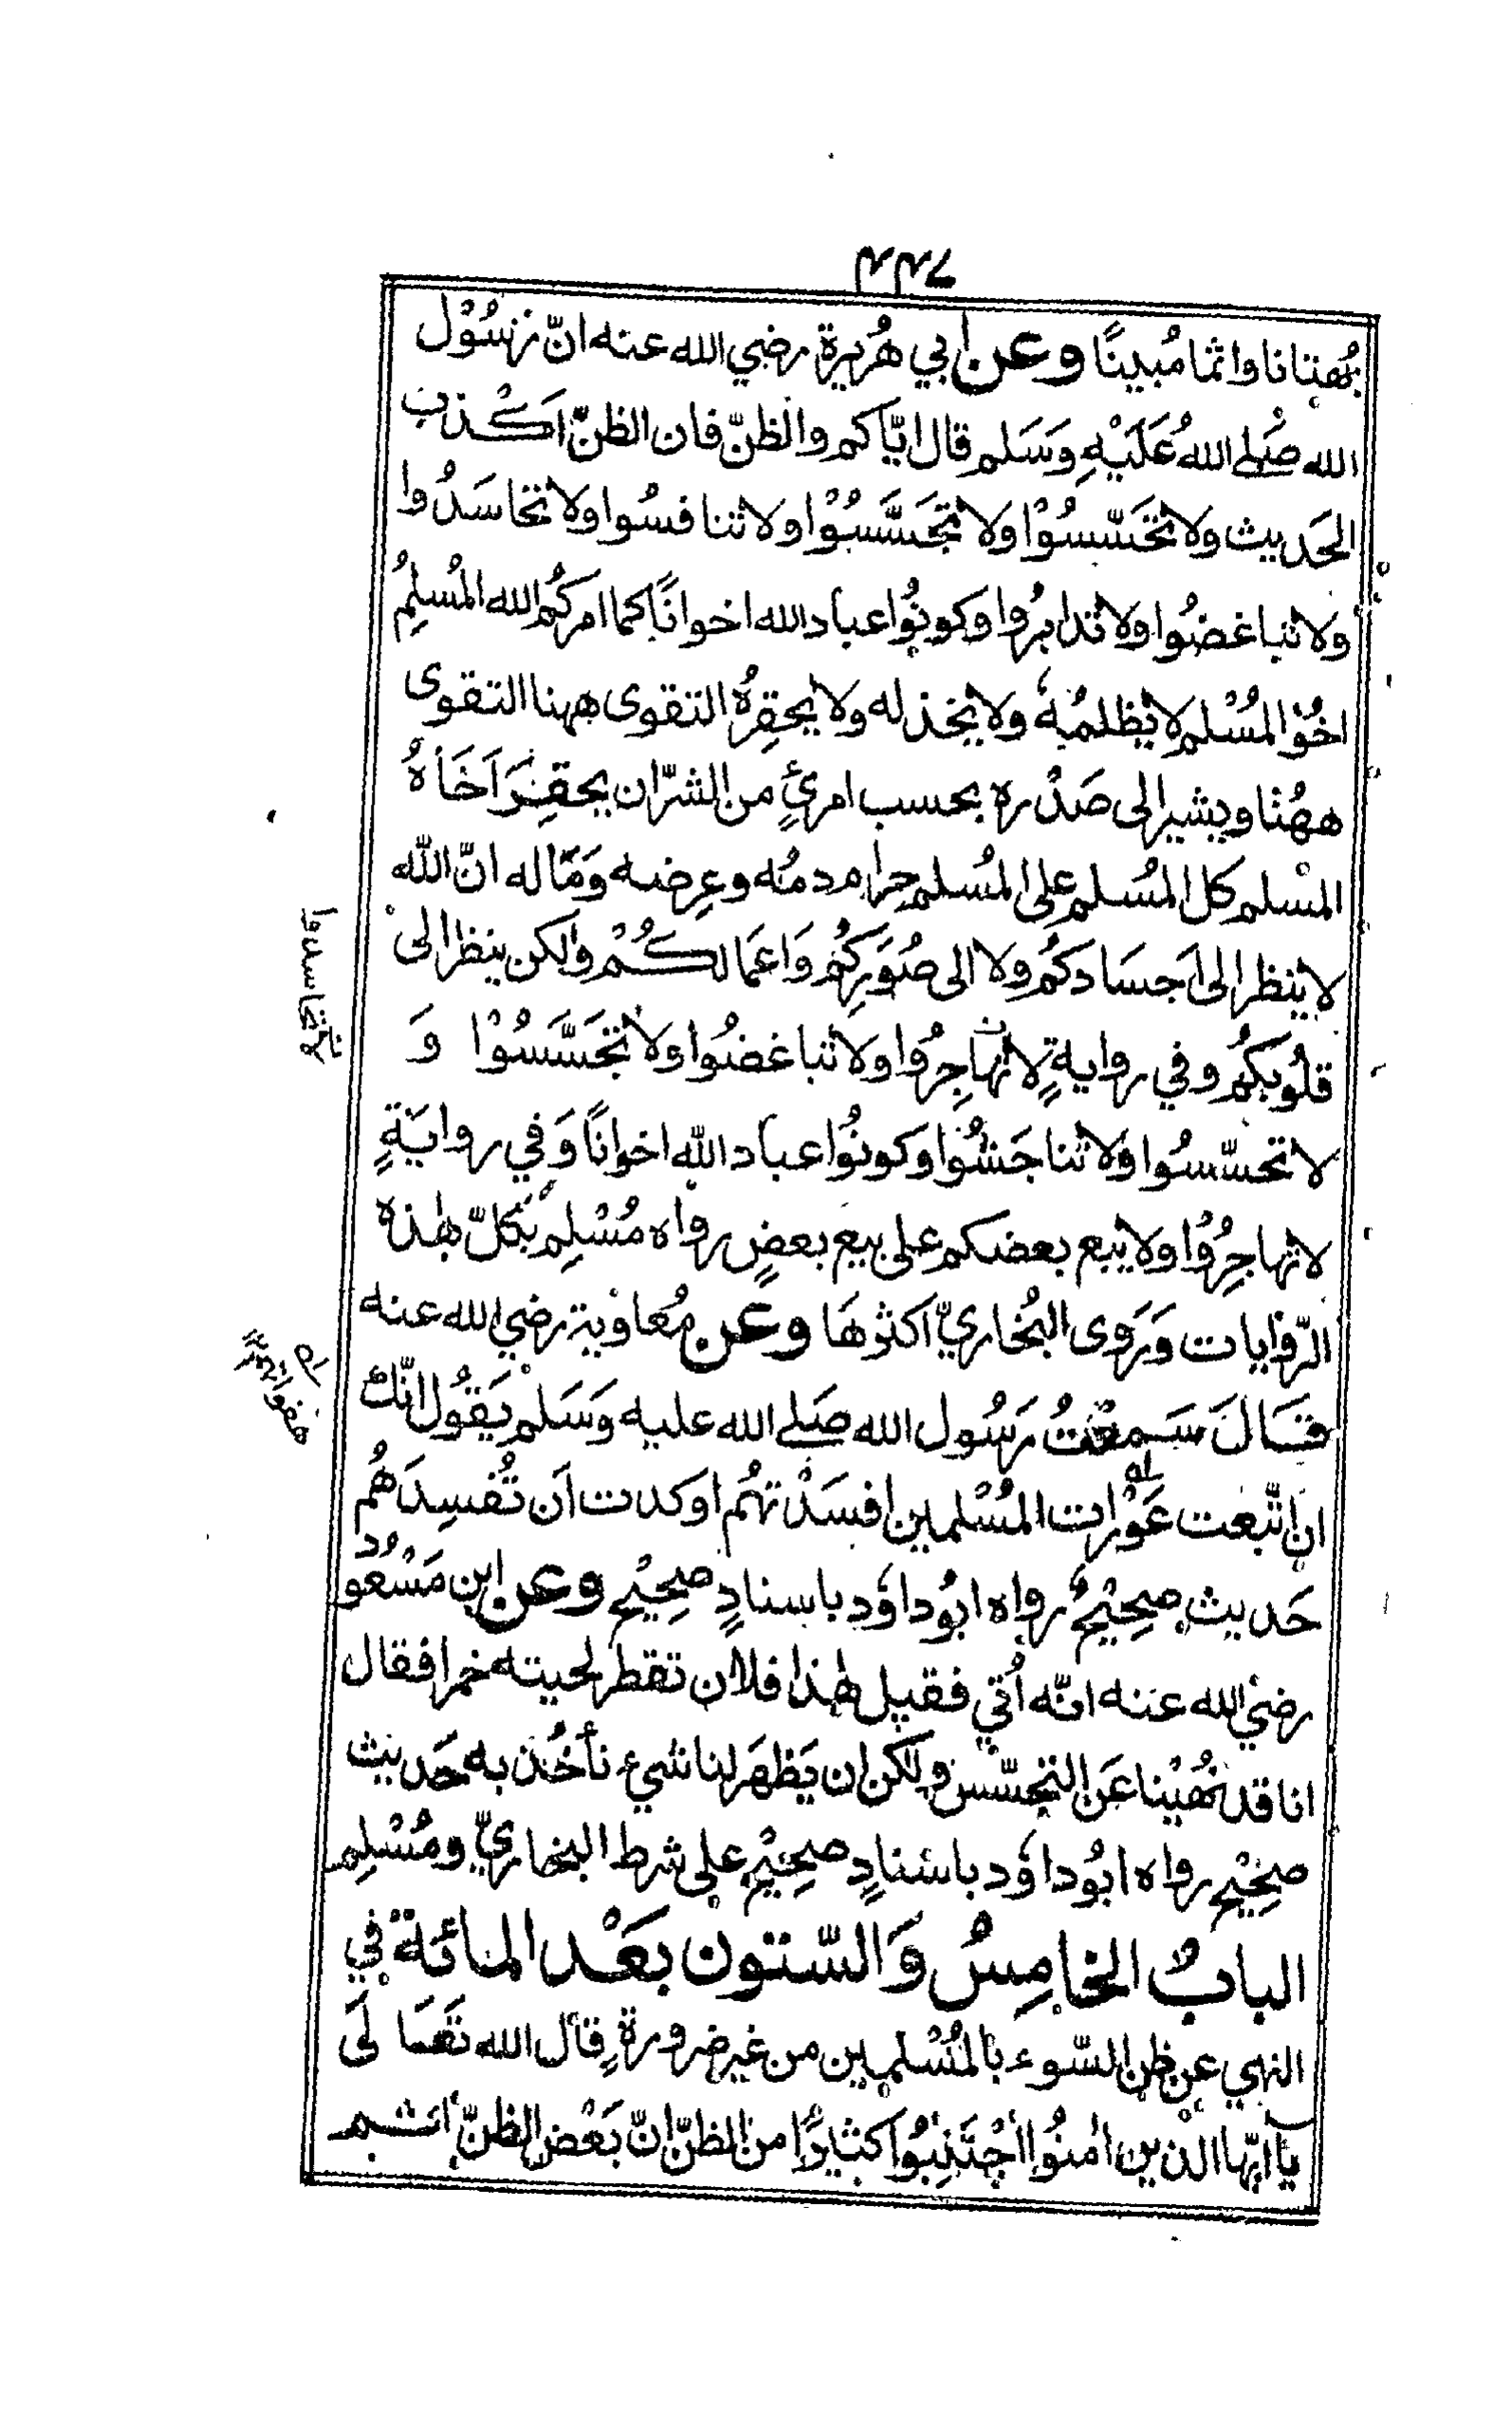 ٤٤٦
بُهتانا واثما مُبينًا وعن ابي هُريرة رضي الله عنه انّ رَسُوْل
الله صَلى اللهُ عَلَيْهِ وَسَلم قال ايّاكم والظنّ فان الظنّ اَكْذب
الحَديث ولا تحَسّسُوْا ولا تجَسَّسُوْا ولا تنافسُوا ولا تحاسَدُوا
ولا تباغضُوا ولا تدابرُوا وكونوُا عباد الله اخوانًا كما امركُم الله المُسْلِمُ
اخُوْ المُسْلم لا يظلمُهُ ولا يخذله ولا يحقِرُهُ التقوى ههنا التقوى
ههُنا ويشير الى صَدْره بحسب امرئٍ من الشرّ ان يحقِرَ اَخَاهُ
المسْلم كل المُسلم على المُسلم حرام دمُه وعِرضه وَمَاله انّ الله
لا ينظر الى اَجسَادكُم ولا الى صُوَرِكُم وَاَعمَالكُمْ ولكن ينظر الى
قلُوبكُم وفي روايةٍ لا تهاجِرُوا ولا تباغضُوا ولا تجَسَّسُوْا وَ
لا تحسّسُوا ولا تناجَشُوا وكونوُا عباد الله اخوانًا وَفي روايَةٍ
لا تهاجِرُوْا ولا يبع بعضكم على بيع بعضٍ رواه مُسْلِم بكلّ هٰذه
الرّوايات وَرَوى البُخاريّ اكثرهَا وعن مُعاوية رضي الله عنه
قَالَ سَمِعْتُ رَسُول الله صَلى الله عليه وَسَلمْ يَقُول انّك
ان اتّبعت عَوْرات المُسْلمين افسَدْتهُم او كدت اَن تُفسِدَهُم
حَديث صحِيْحٌ رواه ابُو داؤد باسنادٍ صحِيْح وعن ابن مَسْعُوْد
رضي الله عنه انّه اُتي فقيل هٰذا فلان تقطر لحيته خمرا فقال
انا قد نُهيْنا عَن التجسّس ولكن ان يَظهَر لنا شيء نأخُذ به حَديث
صحِيْح رواه ابُو داؤد باسْنادٍ صحِيْحٍ على شرط البخاريّ ومُسْلِم
البابُ الخامِسُ وَالسّتون بَعْد المائة في
النهي عن ظن السّوء بالمُسْلمين من غير ضرورةٍ قال الله تعَالَى
يآايّها الذين اٰمنُوا اجْتَنِبُوا كثيرًا من الظنّ انّ بَعْض الظنّ اثم
لا تحاسدوا